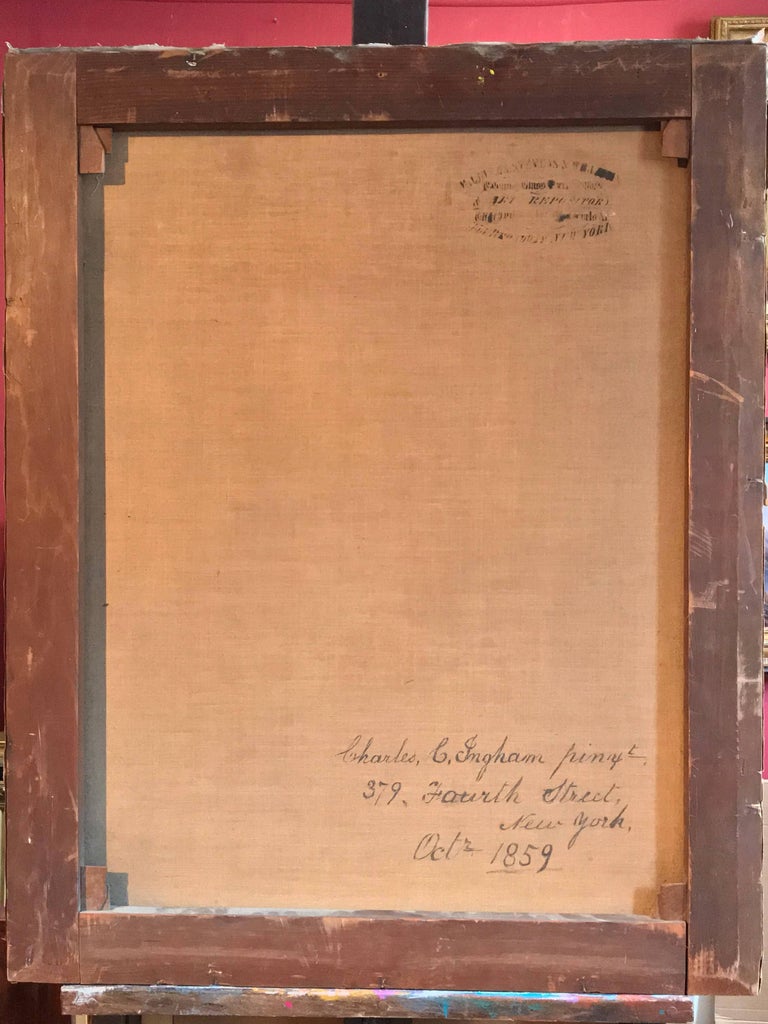 ART REPOSITORY
NEW YORK
Charles, C, Ingham pinxt.
379, Fourth Street,
New York,
Octr 1859